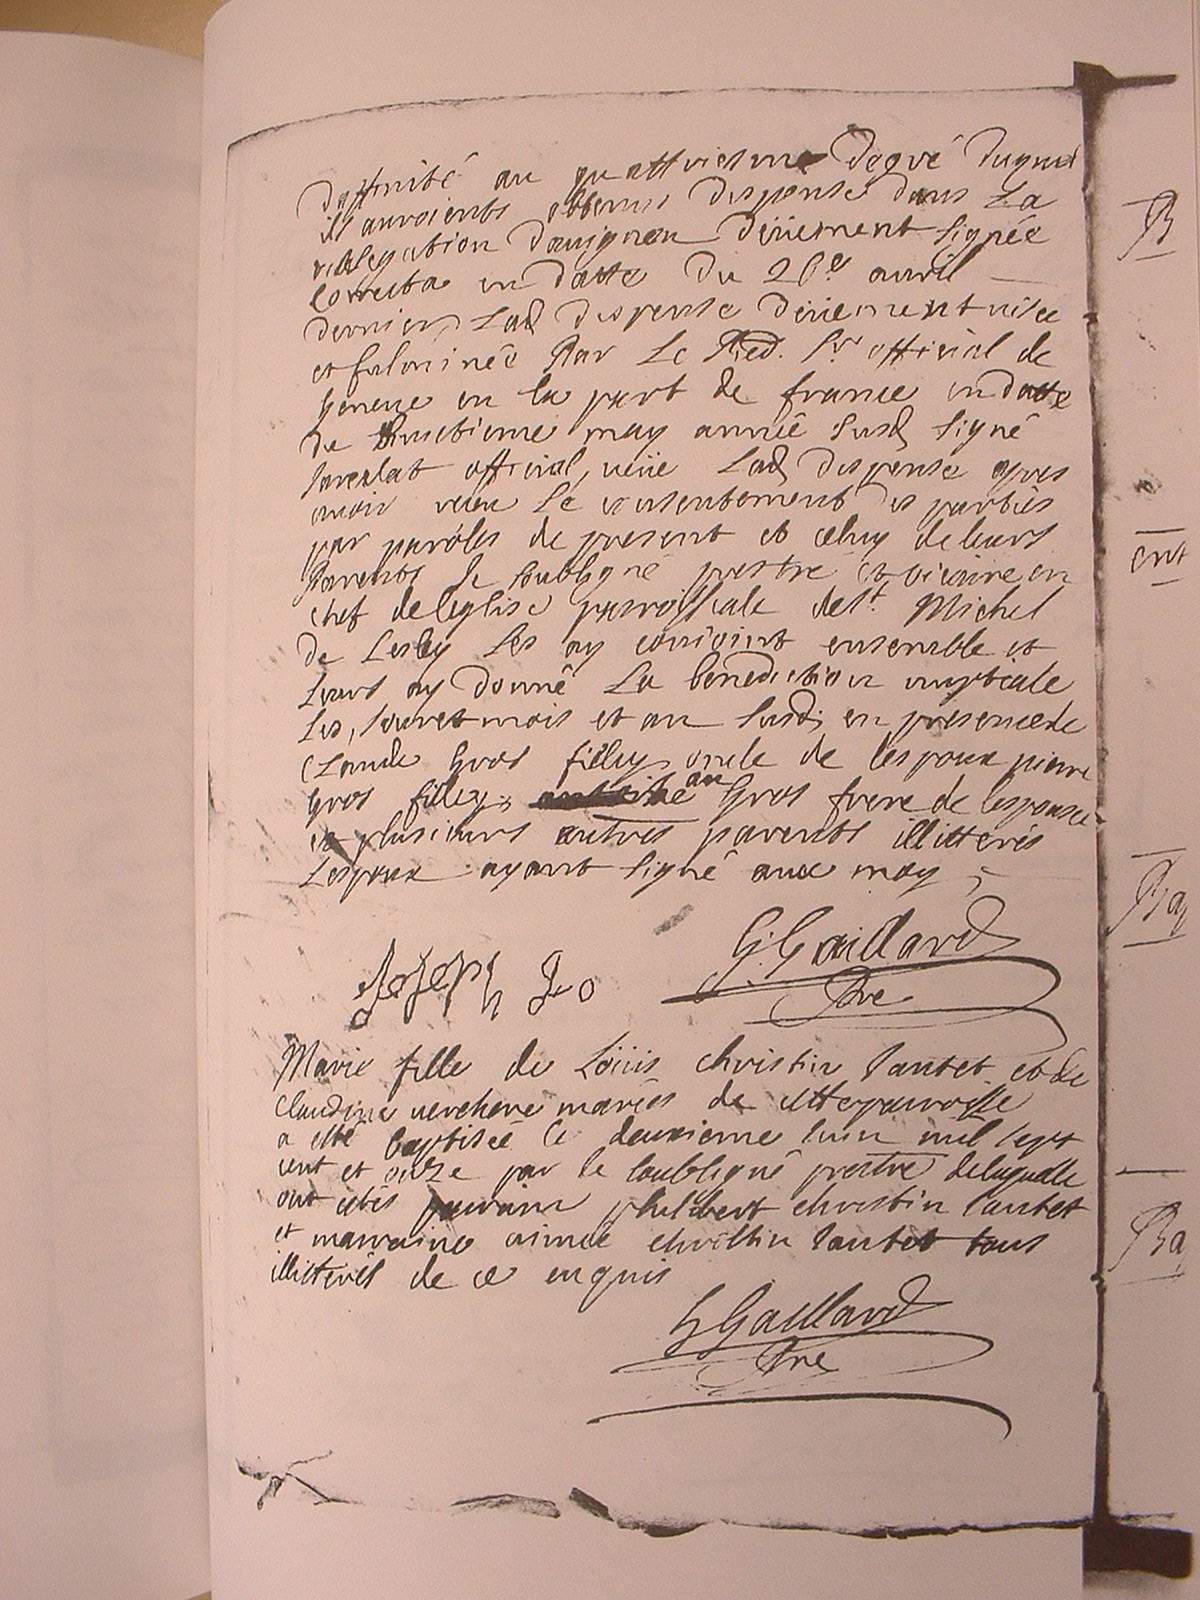 daffinité au quattriesme degré duquel
ils auroients obtenus dispense dans La
vicelegation dauignon düement signée
en datte du 26e auril
dernier, Lad dispense düement visee
et fulminée Par Le Red. Sr official de
geneue en la part de france en datte
de huictieme may année susd signé
official, veüe Lad dispense apres
auoir receu Le consentement des parties
par paroles de present et celuy de leurs
Parents Je soubsigné prestre et vicaire en
chef de leglise parroissiale de st. Michel
de Les ay conioint ensemble et
Leurs ay donné La benediction nuptiale
Les, Jour et mois et an susd, en presence de
Claude gros oncle de lespoux pierre
gros an gros frere de lespouse
et plusieurs autres parents illitterés
Lespoux ayant signé aux moy
G. Gaillard
Joseph Pre
Marie fille de Loüis christin Tantet et de
Claudine verchere mariés de cette parroisse
a esté baptisée le deuxieme iuin mil sept
cent et onze par le soubsigné prestre de laquelle
ont estés parrain philibert christin Tantet
et marraine aimée christin Tantet tous
illitterés de ce enquis
G Gaillard
Pre
B
ent
Ba
Ba